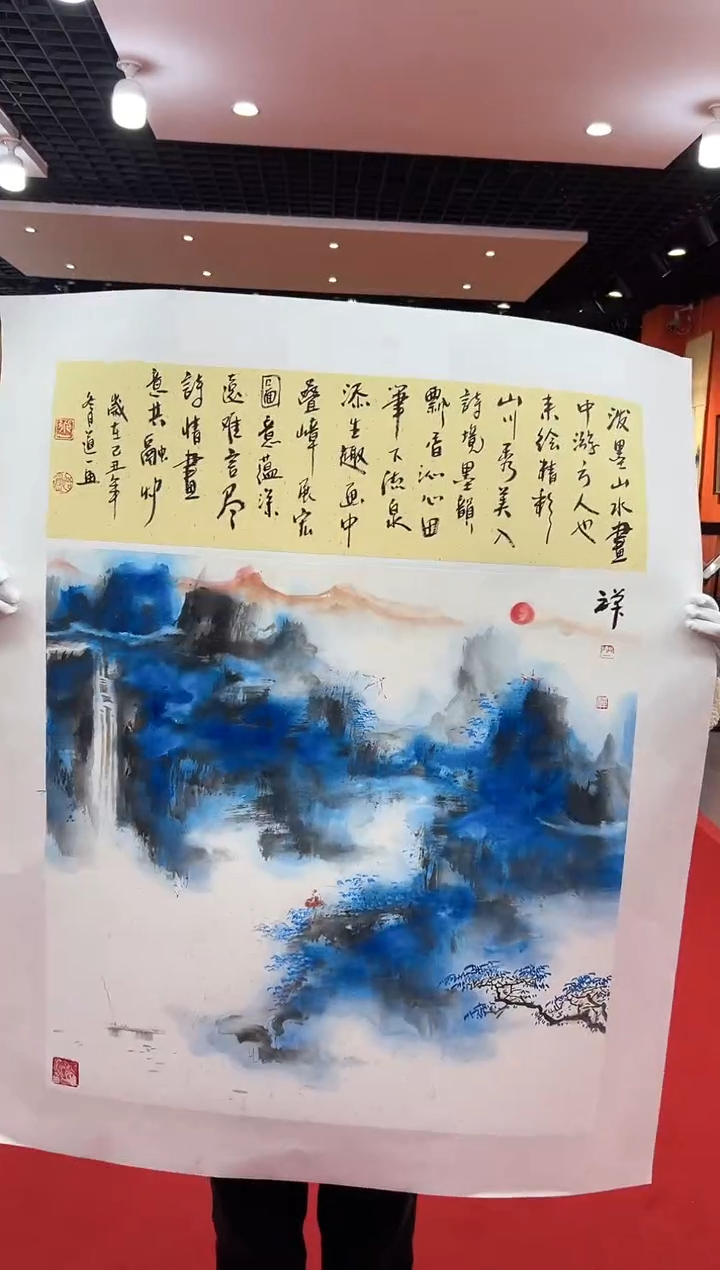 泼墨山水畫
中游人也
来绘精彩
山川秀美入
詩境墨韻
飘香沁心田
筆下流泉
添生趣画中
叠嶂展宏
圖意蕴深
遠难言尽
詩情畫
意共融炉
歲在己丑年
道一画
祥